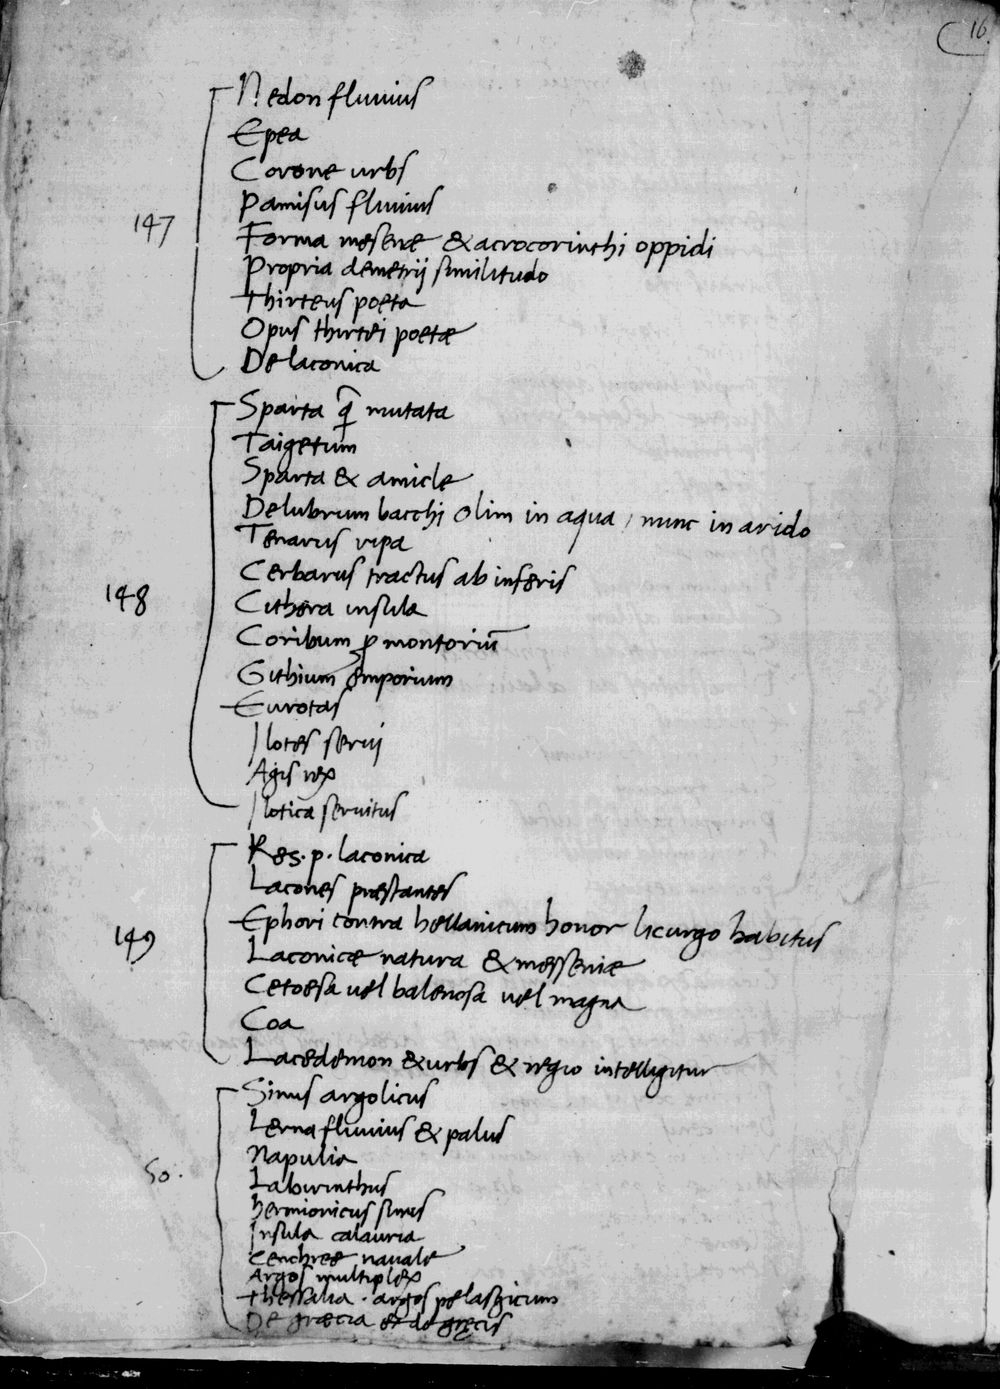 16
Nedon fluuius
Epea
Corone urbs
Pamisus fluuius
147
Forma mesenæ & acrocorinthi oppidi
Propria demetrij similitudo
thirteus poeta
Opus thirtei poetæ
De laconica
Sparta q̄ mutata
Taigetum
Sparta & amicle
Delubrum bacchi olim in aqua, nunc in arido
Tenarus ripa
Cerbarus tractus ab inferis
148
Cithera insula
Coribum ꝓmontoriū
Githium emporium
Eurotas
Ilotes serui
Agis rex
Ilotica seruitus
Res. p. laconica
Lacones præstantes
Ephori contra hellanicum honor licurgo habitus
149
Laconicæ natura & messeniæ
Cetoesa uel balenosa uel magna
Coa
Lacedemon & urbs & regio intelligitur
Sinus argolicus
Lerna fluuius & palus
Napulia
50.
Labirinthus
hermionicus sinus
Insula calauria
Cenchreæ nauale
Argos multiplex
thessalia. argos pelasgicum
De græcia et de gręcis